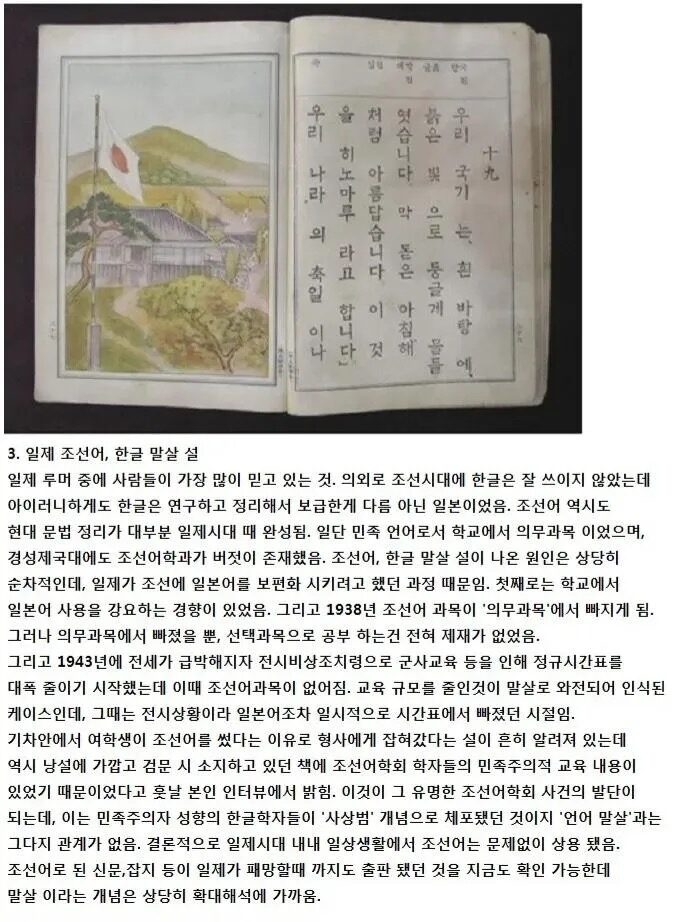 十九
우리 국기는, 흰 바탕에,
붉은 빛으로 둥글게 물들
엿습니다. 막 돋은 아침해
처럼 아름답습니다. 이것
을 히노마루라고 합니다」
우리 나라의 축일이나
3. 일제 조선어, 한글 말살 설
일제 루머 중에 사람들이 가장 많이 믿고 있는 것. 의외로 조선시대에 한글은 잘 쓰이지 않았는데
아이러니하게도 한글은 연구하고 정리해서 보급한게 다름 아닌 일본이었음. 조선어 역시도
현대 문법 정리가 대부분 일제시대 때 완성됨. 일단 민족 언어로서 학교에서 의무과목 이었으며,
경성제국대에도 조선어학과가 버젓이 존재했음. 조선어, 한글 말살 설이 나온 원인은 상당히
순차적인데, 일제가 조선에 일본어를 보편화 시키려고 했던 과정 때문임. 첫째로는 학교에서
일본어 사용을 강요하는 경향이 있었음. 그리고 1938년 조선어 과목이 '의무과목'에서 빠지게 됨.
그러나 의무과목에서 빠졌을 뿐, 선택과목으로 공부 하는건 전혀 제재가 없었음.
그리고 1943년에 전세가 급박해지자 전시비상조치령으로 군사교육 등을 인해 정규시간표를
대폭 줄이기 시작했는데 이때 조선어과목이 없어짐. 교육 규모를 줄인것이 말살로 와전되어 인식된
케이스인데, 그때는 전시상황이라 일본어조차 일시적으로 시간표에서 빠졌던 시절임.
기차안에서 여학생이 조선어를 썼다는 이유로 형사에게 잡혀갔다는 설이 흔히 알려져 있는데
역시 낭설에 가깝고 검문 시 소지하고 있던 책에 조선어학회 학자들의 민족주의적 교육 내용이
있었기 때문이었다고 훗날 본인 인터뷰에서 밝힘. 이것이 그 유명한 조선어학회 사건의 발단이
되는데, 이는 민족주의자 성향의 한글학자들이 '사상범' 개념으로 체포됐던 것이지 '언어 말살'과는
그다지 관계가 없음. 결론적으로 일제시대 내내 일상생활에서 조선어는 문제없이 상용 됐음.
조선어로 된 신문,잡지 등이 일제가 패망할때 까지도 출판 됐던 것을 지금도 확인 가능한데
말살 이라는 개념은 상당히 확대해석에 가까움.